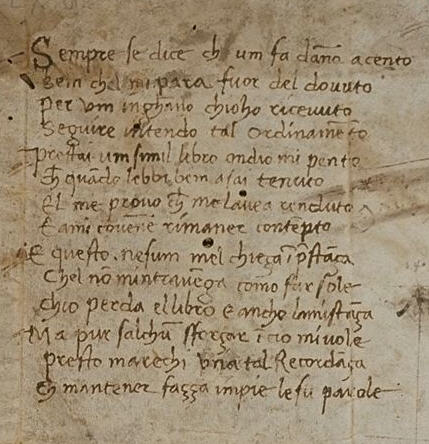 Sempre se dice ch um fa dãno a cento
Bem chel mi para fuor del dovuto
Per um inghano chioho ricevuto
Seguire intendo tal ordinamẽto
Prestai um simil libro ondio mi pento
Et quãdo lebbi bem asai tenuto
El me provo ch me lavea renduto
E ami convẽne rimaner contẽpto
E questo nesum mel chiegia ĩ pstãça
Chel nõ mintravenga como far sole
Chio perda el libro e ancho lamistãça
Ma pur salchũ sforçar ĩ cio mi vole
Presto marechi una tal Recordãça
Et mantener fazza impie le su parole